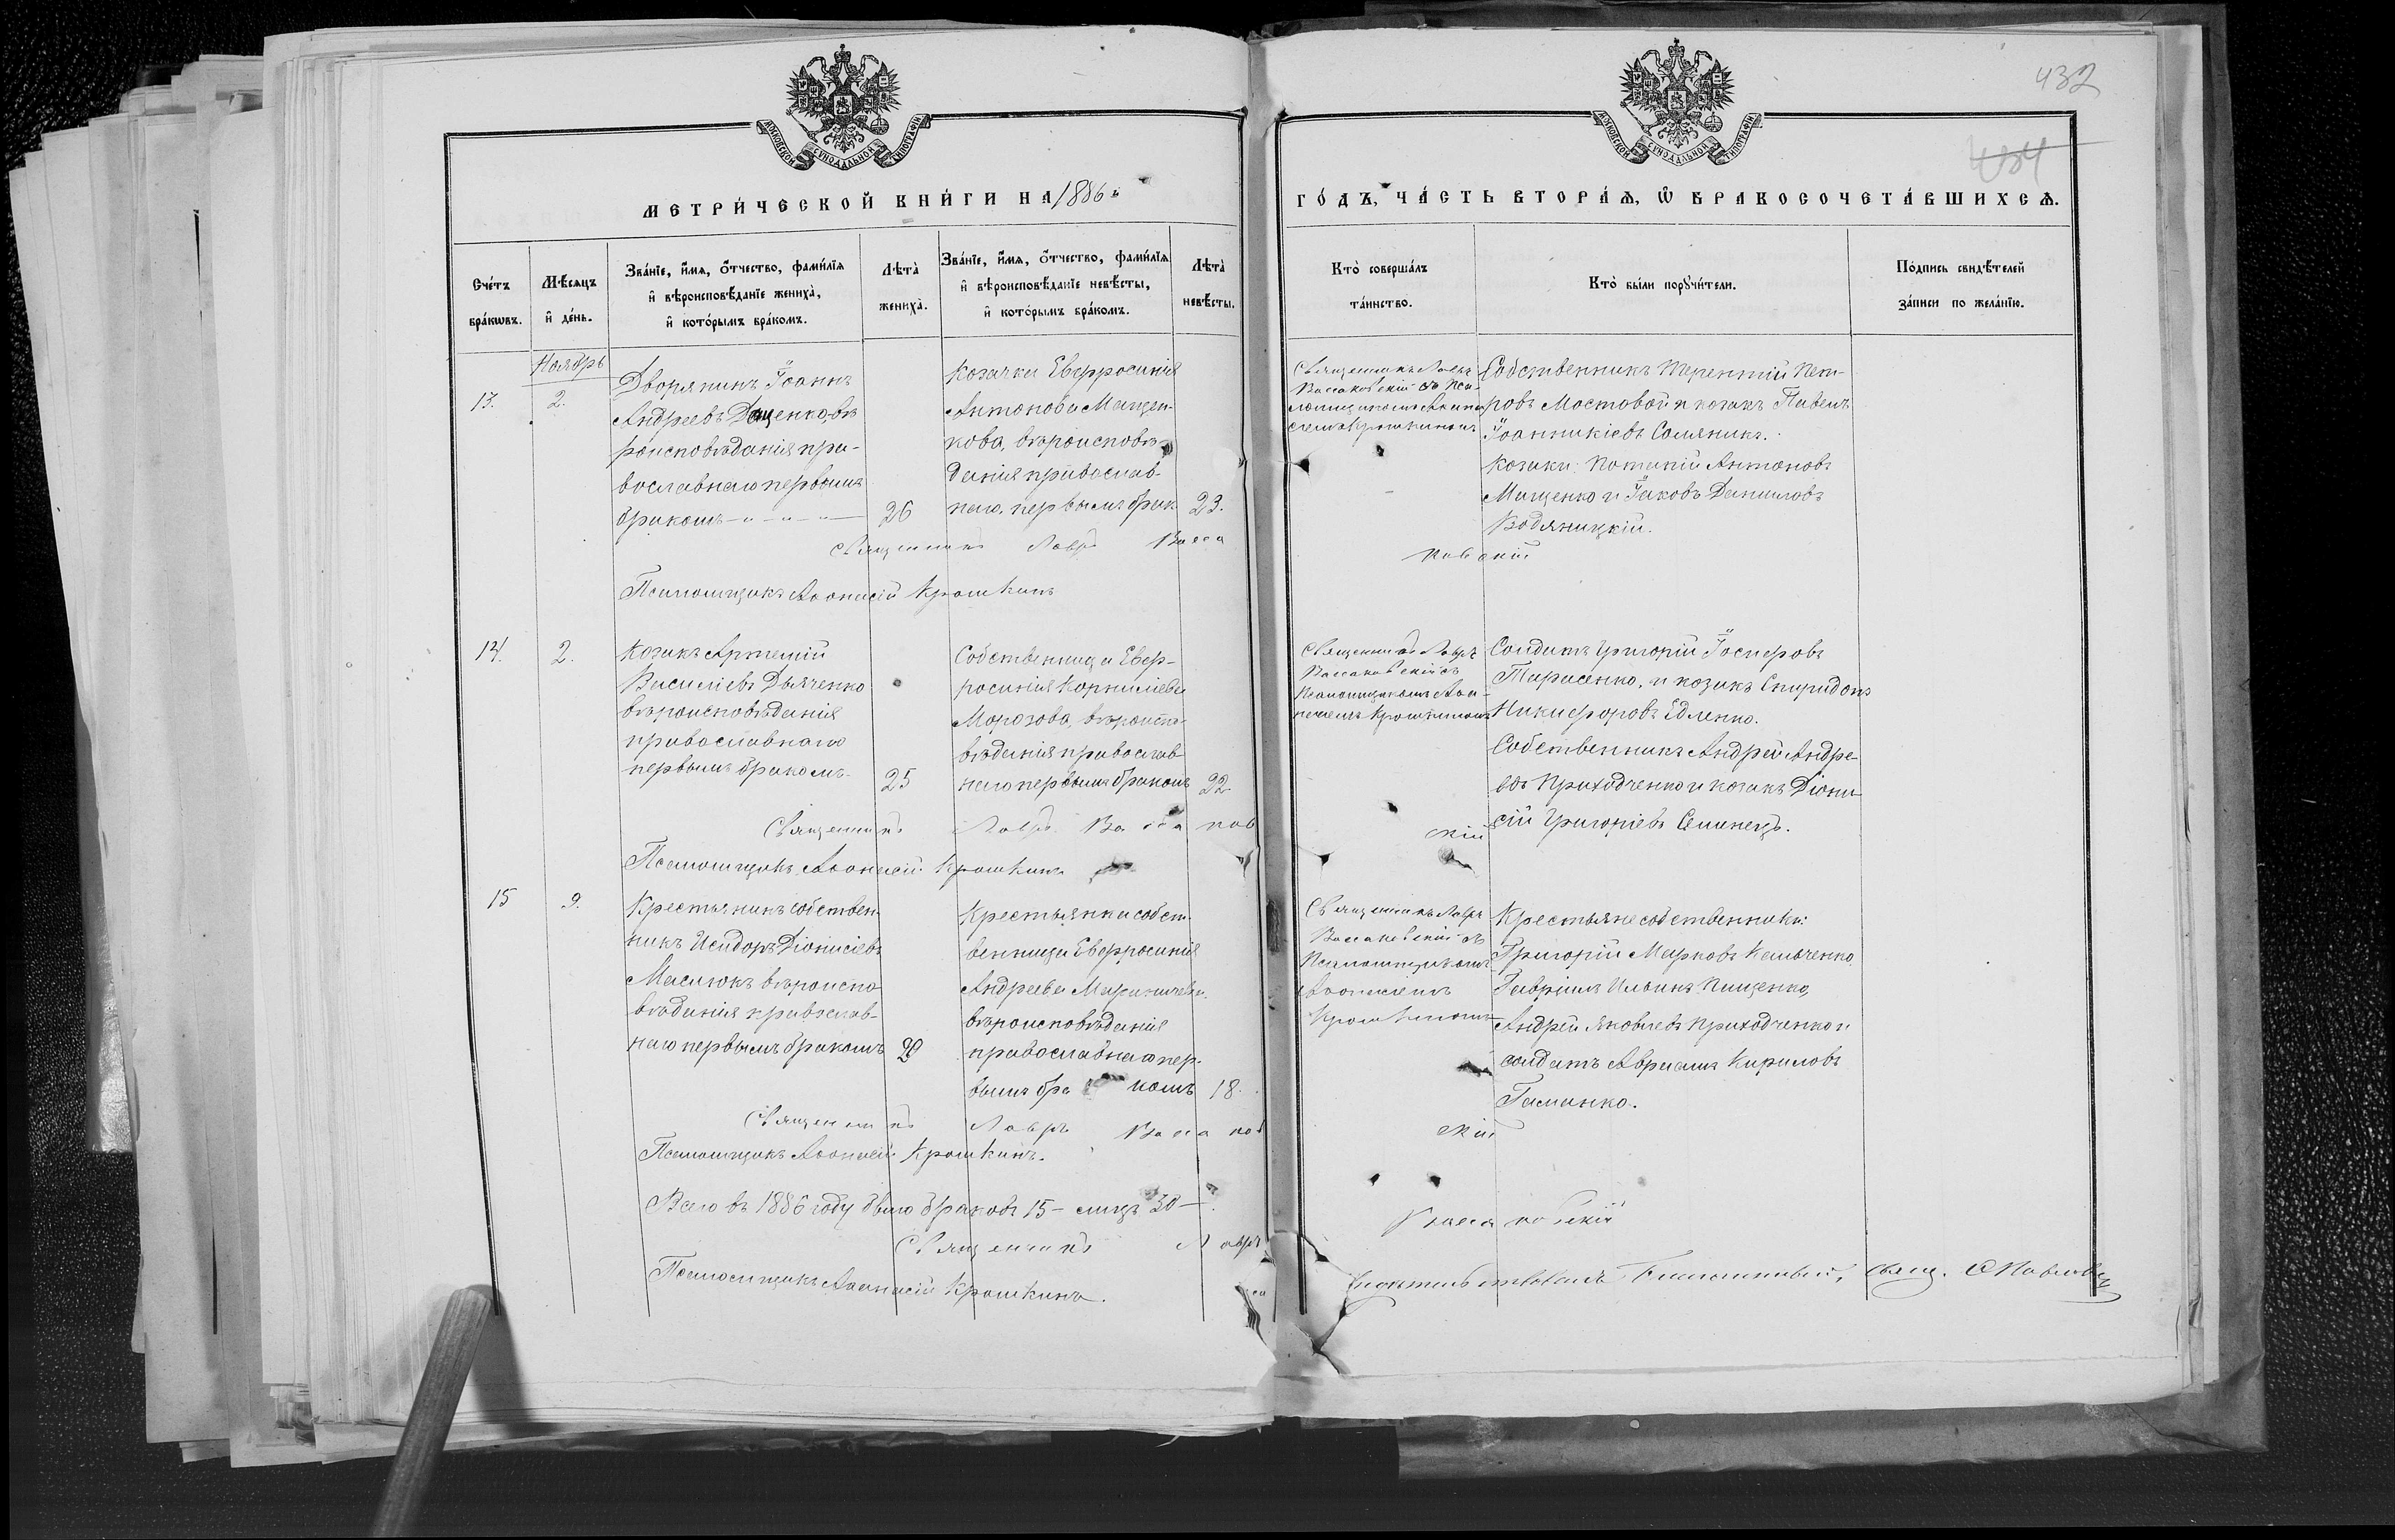 432
МОСКОВСКОЙ СѴНОДАЛЬНОЙ ТИПОГРАФІИ
МОСКОВСКОЙ СѴНОДАЛЬНОЙ ТИПОГРАФІИ
МЕТРИ́ЧЕСКОЙ КНИ́ГИ НА 1886 й
ГО́ДЪ, ЧА́СТЬ ВТОРА́Ѧ, Ѡ҆ БРАКОСОЧЕТА́ВШИХСѦ.
Сче́тъ бра́кωвъ.
Мѣ́сѧцъ и҆ де́нь.
Зва́нїе, и҆́мѧ, о҆́тчество, фами́лїѧ и҆ вѣроисповѣ́данїе жениха̀, и҆ кото́рымъ бра́комъ.
Лѣта̀ жениха̀.
Зва́нїе, и҆́мѧ, о҆́тчество, фами́лїѧ и҆ вѣроисповѣ́данїе невѣ́сты, и҆ кото́рымъ бра́комъ.
Лѣта̀ невѣ́сты.
Кто̀ соверша́лъ та́инство.
Кто̀ бы́ли порꙋчи́тели.
По́дпись свидѣ́телей за́писи по жела́нїю.
Ноябрь
13.
2.
Дворянинъ Іоаннъ
Андреевъ Даценко, вѣ
роисповѣданія пра-
вославнаго первымъ
бракомъ
26
Козачка Евфросинія
Антонова Мащен-
кова, вѣроисповѣ-
данія православ-
наго, первымъ брак
23.
Священникъ Лавръ
Вассаковскій съ Пса-
ломщикомъ Афана
сіемъ Крошкинымъ
Собственникъ Терентій Пет-
ровъ Мостовой и козакъ Павелъ
Іоанникіевъ Саляникъ.
Козаки: Потапій Антоновъ
Мащенко и Іаковъ Даниловъ
Водяницкій.
Священникъ Лавръ Васса
ковскій
Псаломщикъ Аѳонасій Крошкинъ
14.
2.
Козакъ Артемій
Василіевъ Дьяченко
вѣроисповѣданія
православнаго
первымъ бракомъ
25
Собственница Евфр-
росинія Корниліева
Морозова, вѣроиспо-
вѣданія православ
наго первымъ бракомъ
22
Священникъ Лавръ
Вассаковскій съ
Псаломщикомъ Афа-
насіемъ Крошкинымъ
Солдатъ Григорій Іосифовъ
Тарасенко, и козакъ Спиридонъ
Никифоровъ Едленко.
Собственникъ Андрей Андре-
евъ Приходченко и козакъ Діони-
сій Григоріевъ Семинецъ.
Священникъ Лавръ Вассаков
скій
Псаломщикъ Аѳонасій Крошкинъ
15
9.
Крестьянинъ собствен-
никъ Исидоръ Діонисіевъ
Маслюкъ вѣроиспо-
вѣданія православ-
наго первымъ бракомъ
20
Крестьянка собст-
венница Евфросинія
Андреева Мариничева.
вѣроисповѣданія
православнаго пер-
вымъ бра комъ
18.
Священникъ Лавръ
Вассаковскій съ
Псаломщикомъ
Аѳонасіемъ
Крошкинымъ
Крестьяне собственники:
Григорій Марковъ Калюченко
Гавріилъ Ильинъ Пищенко,
Андрей Яковлевъ Приходченко и
солдатъ Авраамъ Кириловъ
Гаманко.
Священникъ Лавръ Вассаков
скій
Псаломщикъ Аѳонасій Крошкинъ.
Всего въ 1886 году было браковъ 15 – лицъ 30 –
Священникъ Лавръ
Вассаковскій
Псаломщикъ Аѳонасій Крошкинъ.